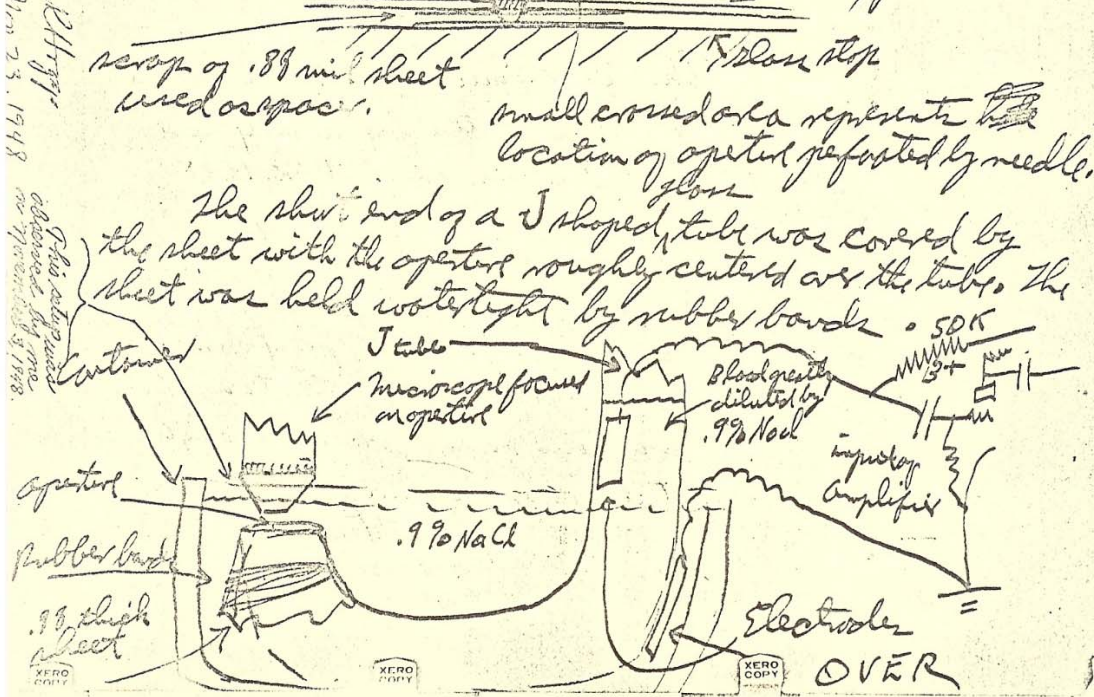 scrap of .88 mil sheet
used as spac
glass stop
small crossed area represents
location of aperture perforated by needle.
glass
The short end of a J shaped tube was covered by
the sheet with the aperture roughly centered over the tube. The
sheet was held watertight by rubber bands.
Nov 23, 1948
This setup was
observed by me
on November 23, 1948.
50K
B+
J tube
microscope focused
on aperture
Blood greatly
diluted by
.9% NaCl
input of
amplifier
aperture
.9% NaCl
Rubber bands
.88 thick
sheet
Electrodes
OVER
XERO
COPY
XERO
COPY
XERO
COPY